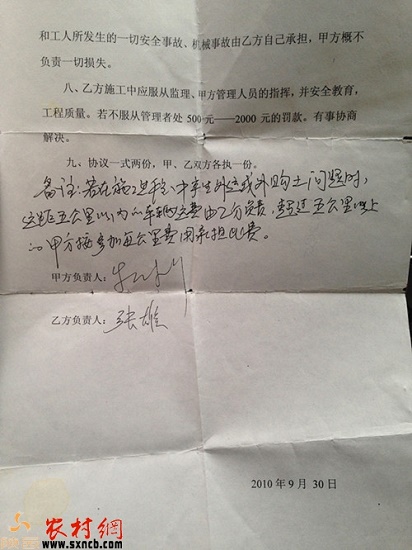 和工人所发生的一切安全事故、机械事故由乙方自己承担，甲方概不
负责一切损失。
八、乙方施工中应服从监理、甲方管理人员的指挥，并安全教育，
工程质量。若不服从管理者处 500 元——2000 元的罚款。有事协商
解决。
九、协议一式两份，甲、乙双方各执一份。
备注：若在施工过程中产生外运或外购土问题时，
运距五公里以内的车辆运费由乙方负责，超过五公里以上
的甲方按多加每公里费用承担此费。
甲方负责人：
乙方负责人：张雄
2010 年 9 月 30 日
农村網
www.sxncb.com